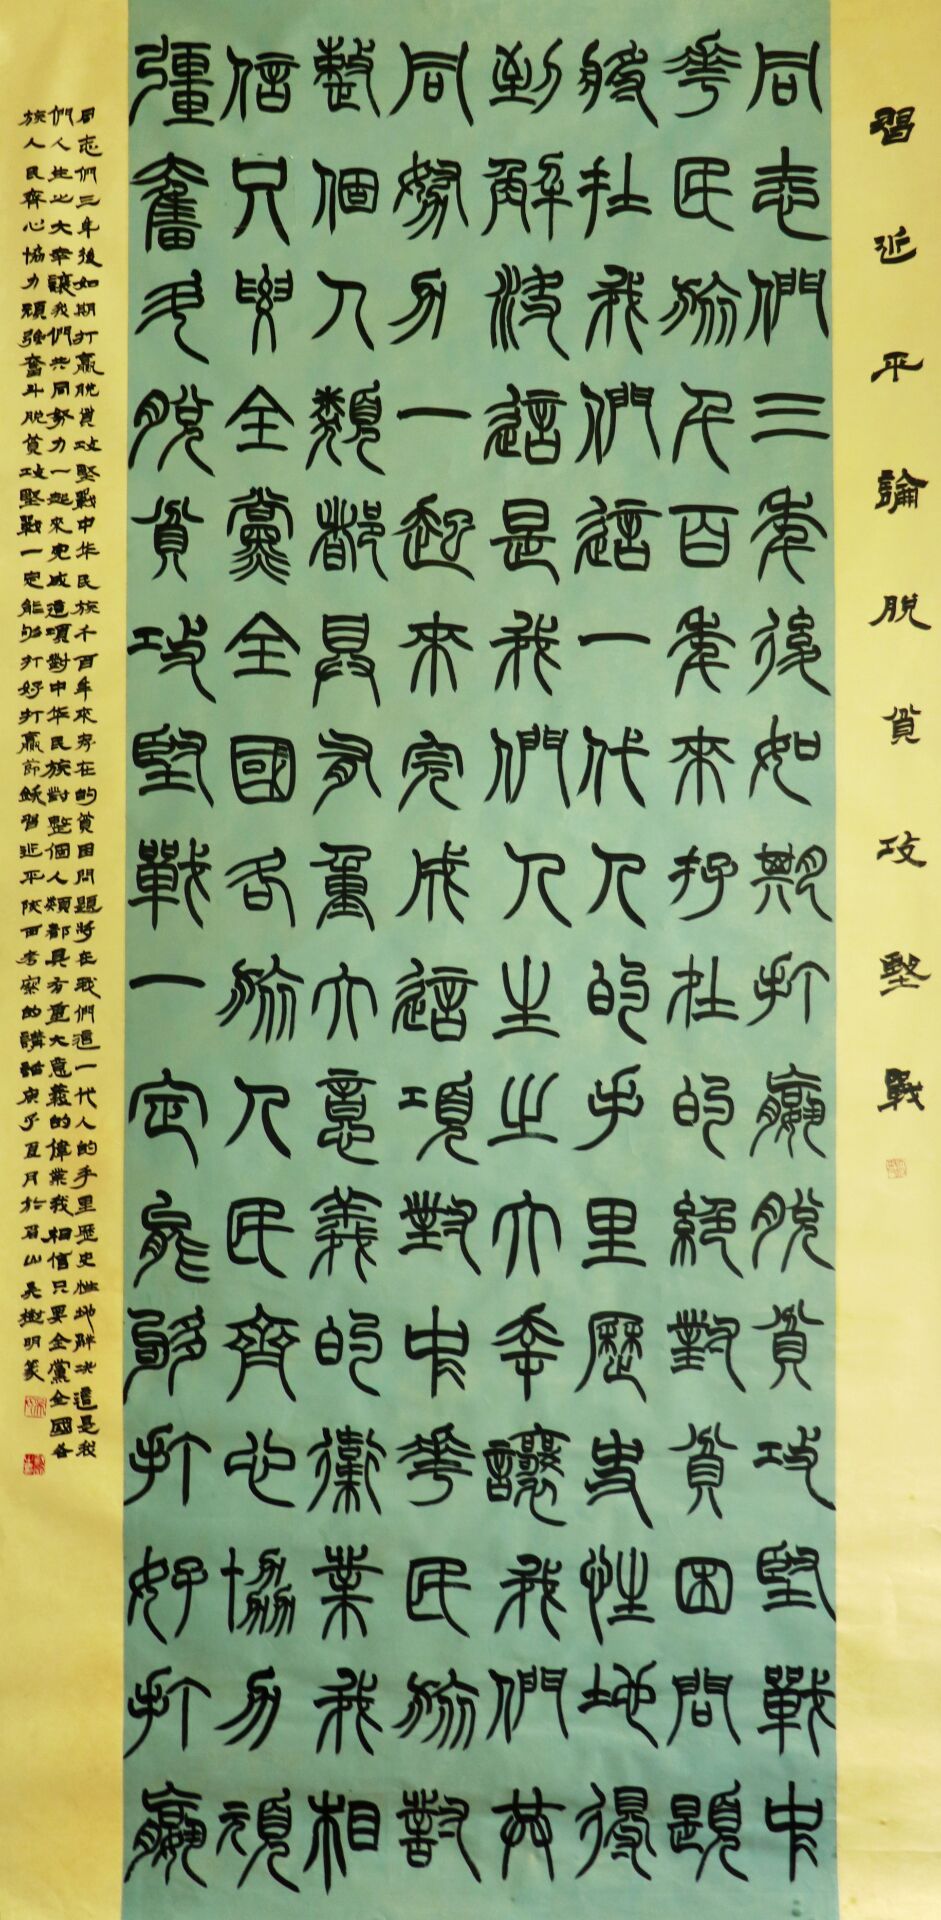 習近平論脫貧攻堅戰
同志們三年後如期打贏脫貧攻堅戰中
華民族千百年來存在的絕對貧困問題
將在我們這一代人的手里歷史性地得
到解決這是我們人生之大幸讓我們共
同努力一起來完成這項對中華民族對
整個人類都具有重大意義的偉業我相
信只要全黨全國各族人民齊心協力頑
彊奮斗脫貧攻堅戰一定能夠打好打贏
同志們三年後如期打贏脫貧攻堅戰中华民族千百年來存在的貧困問題將在我們這一代人的手里歷史性地解決這是我
們人生之大幸讓我們共同努力一起來完成這項對中华民族對整個人類都具有重大意義的偉業我相信只要全黨全國各
族人民齊心協力頑強奮斗脫貧攻堅戰一定能够打好打贏節錄習近平陝西考察的講話庚子夏月於眉山吳樹明篆